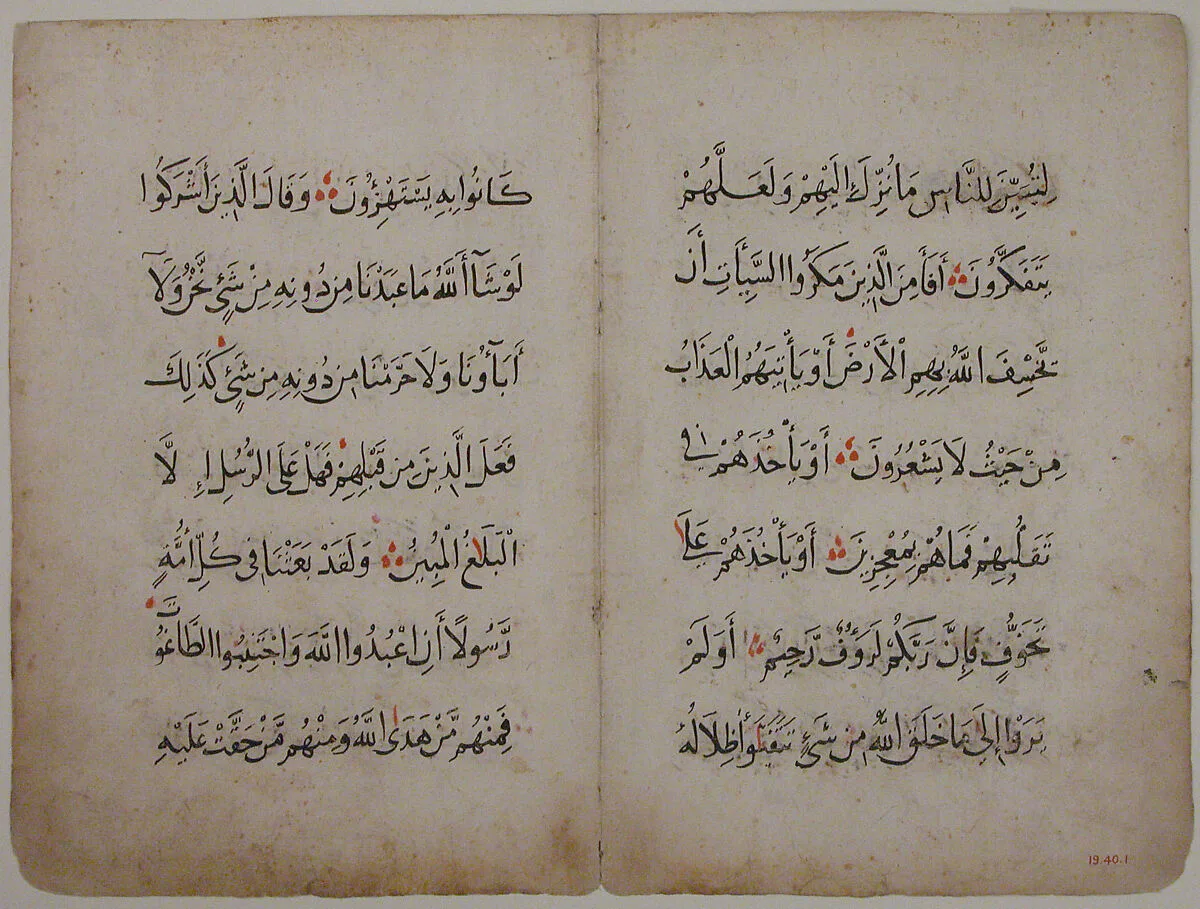 لِتُبَيِّنَ لِلنَّاسِ مَا نُزِّلَ إِلَيْهِمْ وَلَعَلَّهُمْ
يَتَفَكَّرُونَ أَفَأَمِنَ الَّذِينَ مَكَرُوا السَّيِّأَتِ أَنْ
يَّخْسِفَ اللَّهُ بِهِمِ الْأَرْضَ أَوْ يَأْتِيَهُمُ الْعَذَابُ
مِنْ حَيْثُ لَا يَشْعُرُونَ أَوْ يَأْخُذَهُمْ فِي
تَقَلُّبِهِمْ فَمَا هُمْ بِمُعْجِزِينَ أَوْ يَأْخُذَهُمْ عَلَى
تَخَوُّفٍ فَإِنَّ رَبَّكُمْ لَرَؤُفٌ رَّحِيمٌ أَوَلَمْ
يَرَوْا إِلَى مَا خَلَقَ اللَّهُ مِنْ شَيْءٍ يَتَفَيَّؤُا ظِلَالُهُ
كَانُوا بِهِ يَسْتَهْزِؤُنَ وَقَالَ الَّذِينَ أَشْرَكُوا
لَوْ شَآءَ اللَّهُ مَا عَبَدْنَا مِنْ دُونِهِ مِنْ شَيْءٍ نَّحْنُ وَلَآ
أَبَآؤُنَا وَلَا حَرَّمْنَا مِنْ دُونِهِ مِنْ شَيْءٍ كَذَلِكَ
فَعَلَ الَّذِينَ مِنْ قَبْلِهِمْ فَهَلْ عَلَى الرُّسُلِ إِلَّا
الْبَلَاغُ الْمُبِينُ وَلَقَدْ بَعَثْنَا فِي كُلِّ أُمَّةٍ
رَّسُولًا أَنِ اعْبُدُوا اللَّهَ وَاجْتَنِبُوا الطَّاغُوتَ
فَمِنْهُمْ مَّنْ هَدَى اللَّهُ وَمِنْهُمْ مَّنْ حَقَّتْ عَلَيْهِ
19.40.1